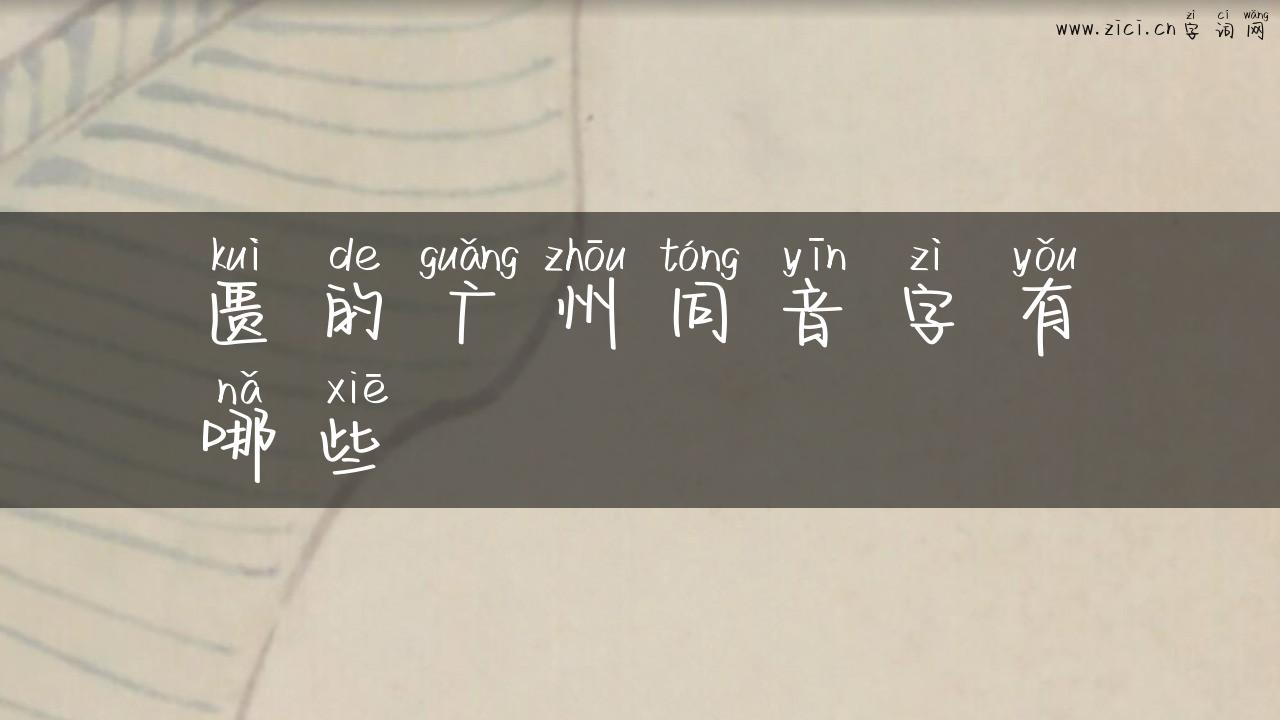 zì cí wǎng
www.zici.cn 字 词 网
kuì de guǎng zhōu tóng yīn zì yǒu
匮 的 广 州 同 音 字 有
nǎ xiē
哪 些